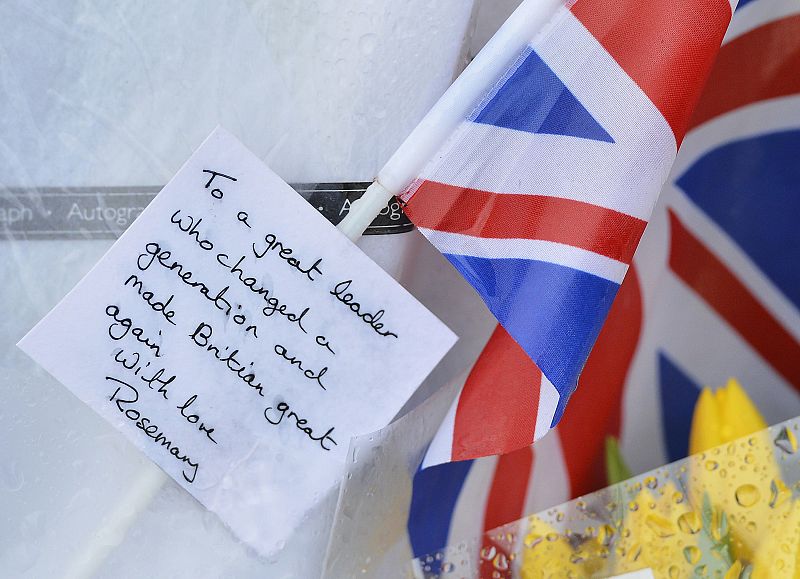 aph · Autogra
· A
To a great leader
who changed a
generation and
made Britian great
again
With love
Rosemary